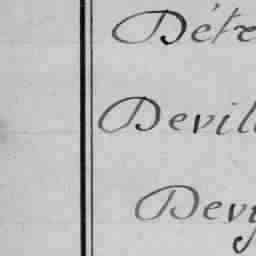 Détr
Devil
Devy